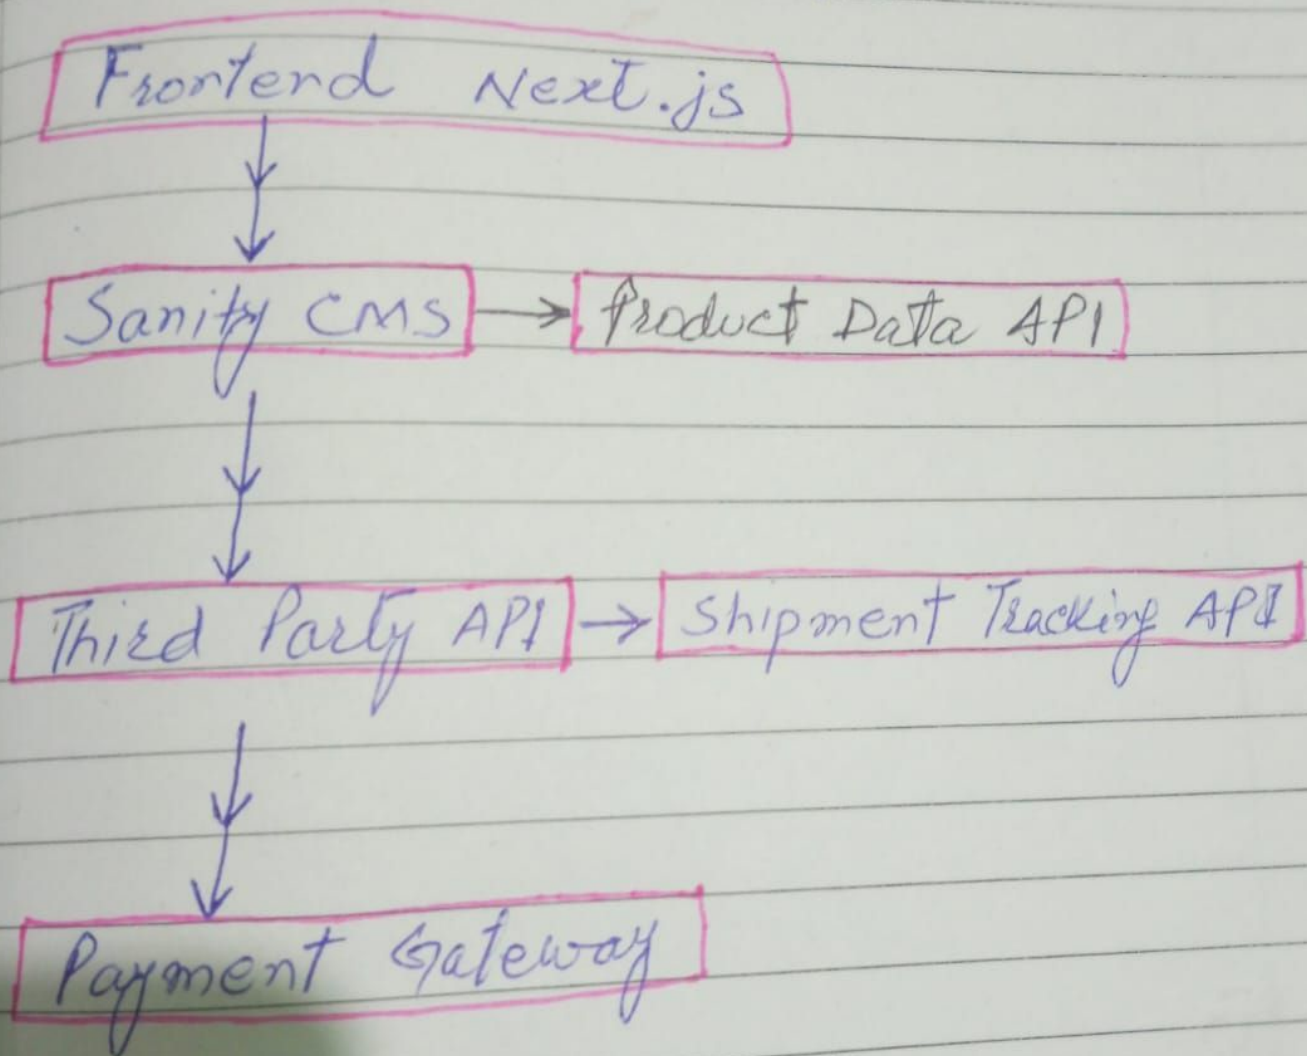 Frontend Next.js
Sanity CMS
Product Data API
Third Party API
Shipment Tracking API
Payment Gateway